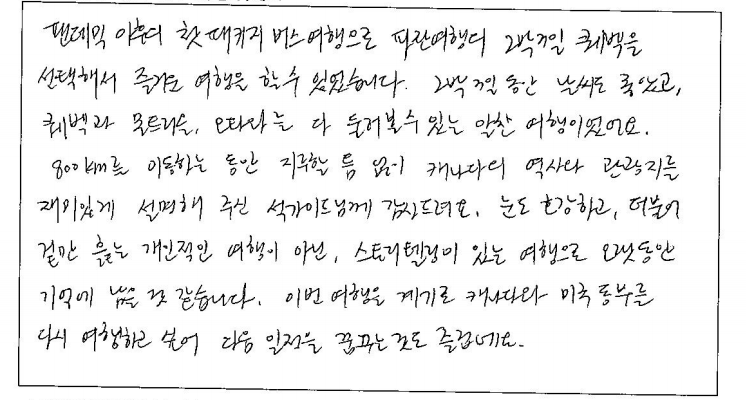 팬데믹 이후의 첫 패키지 버스여행으로 파란여행의 2박3일 퀘벡을
선택해서 즐거운 여행을 할 수 있었습니다. 2박3일 동안 날씨도 좋았고,
퀘벡과 몬트리올, 오타와를 다 둘러볼 수 있는 알찬 여행이었어요.
800km를 이동하는 동안 지루할 틈 없이 캐나다의 역사와 관광지를
재미있게 설명해 주신 석가이드님께 감사드려요. 눈도 호강하고, 더불어
겉만 흝는 개인적인 여행이 아닌, 스토리텔링이 있는 여행으로 오랫동안
기억에 남을 것 같습니다. 이번 여행을 계기로 캐나다와 미국 동부를
다시 여행하고 싶어 다음 일정을 꿈꾸는것도 즐겁네요.